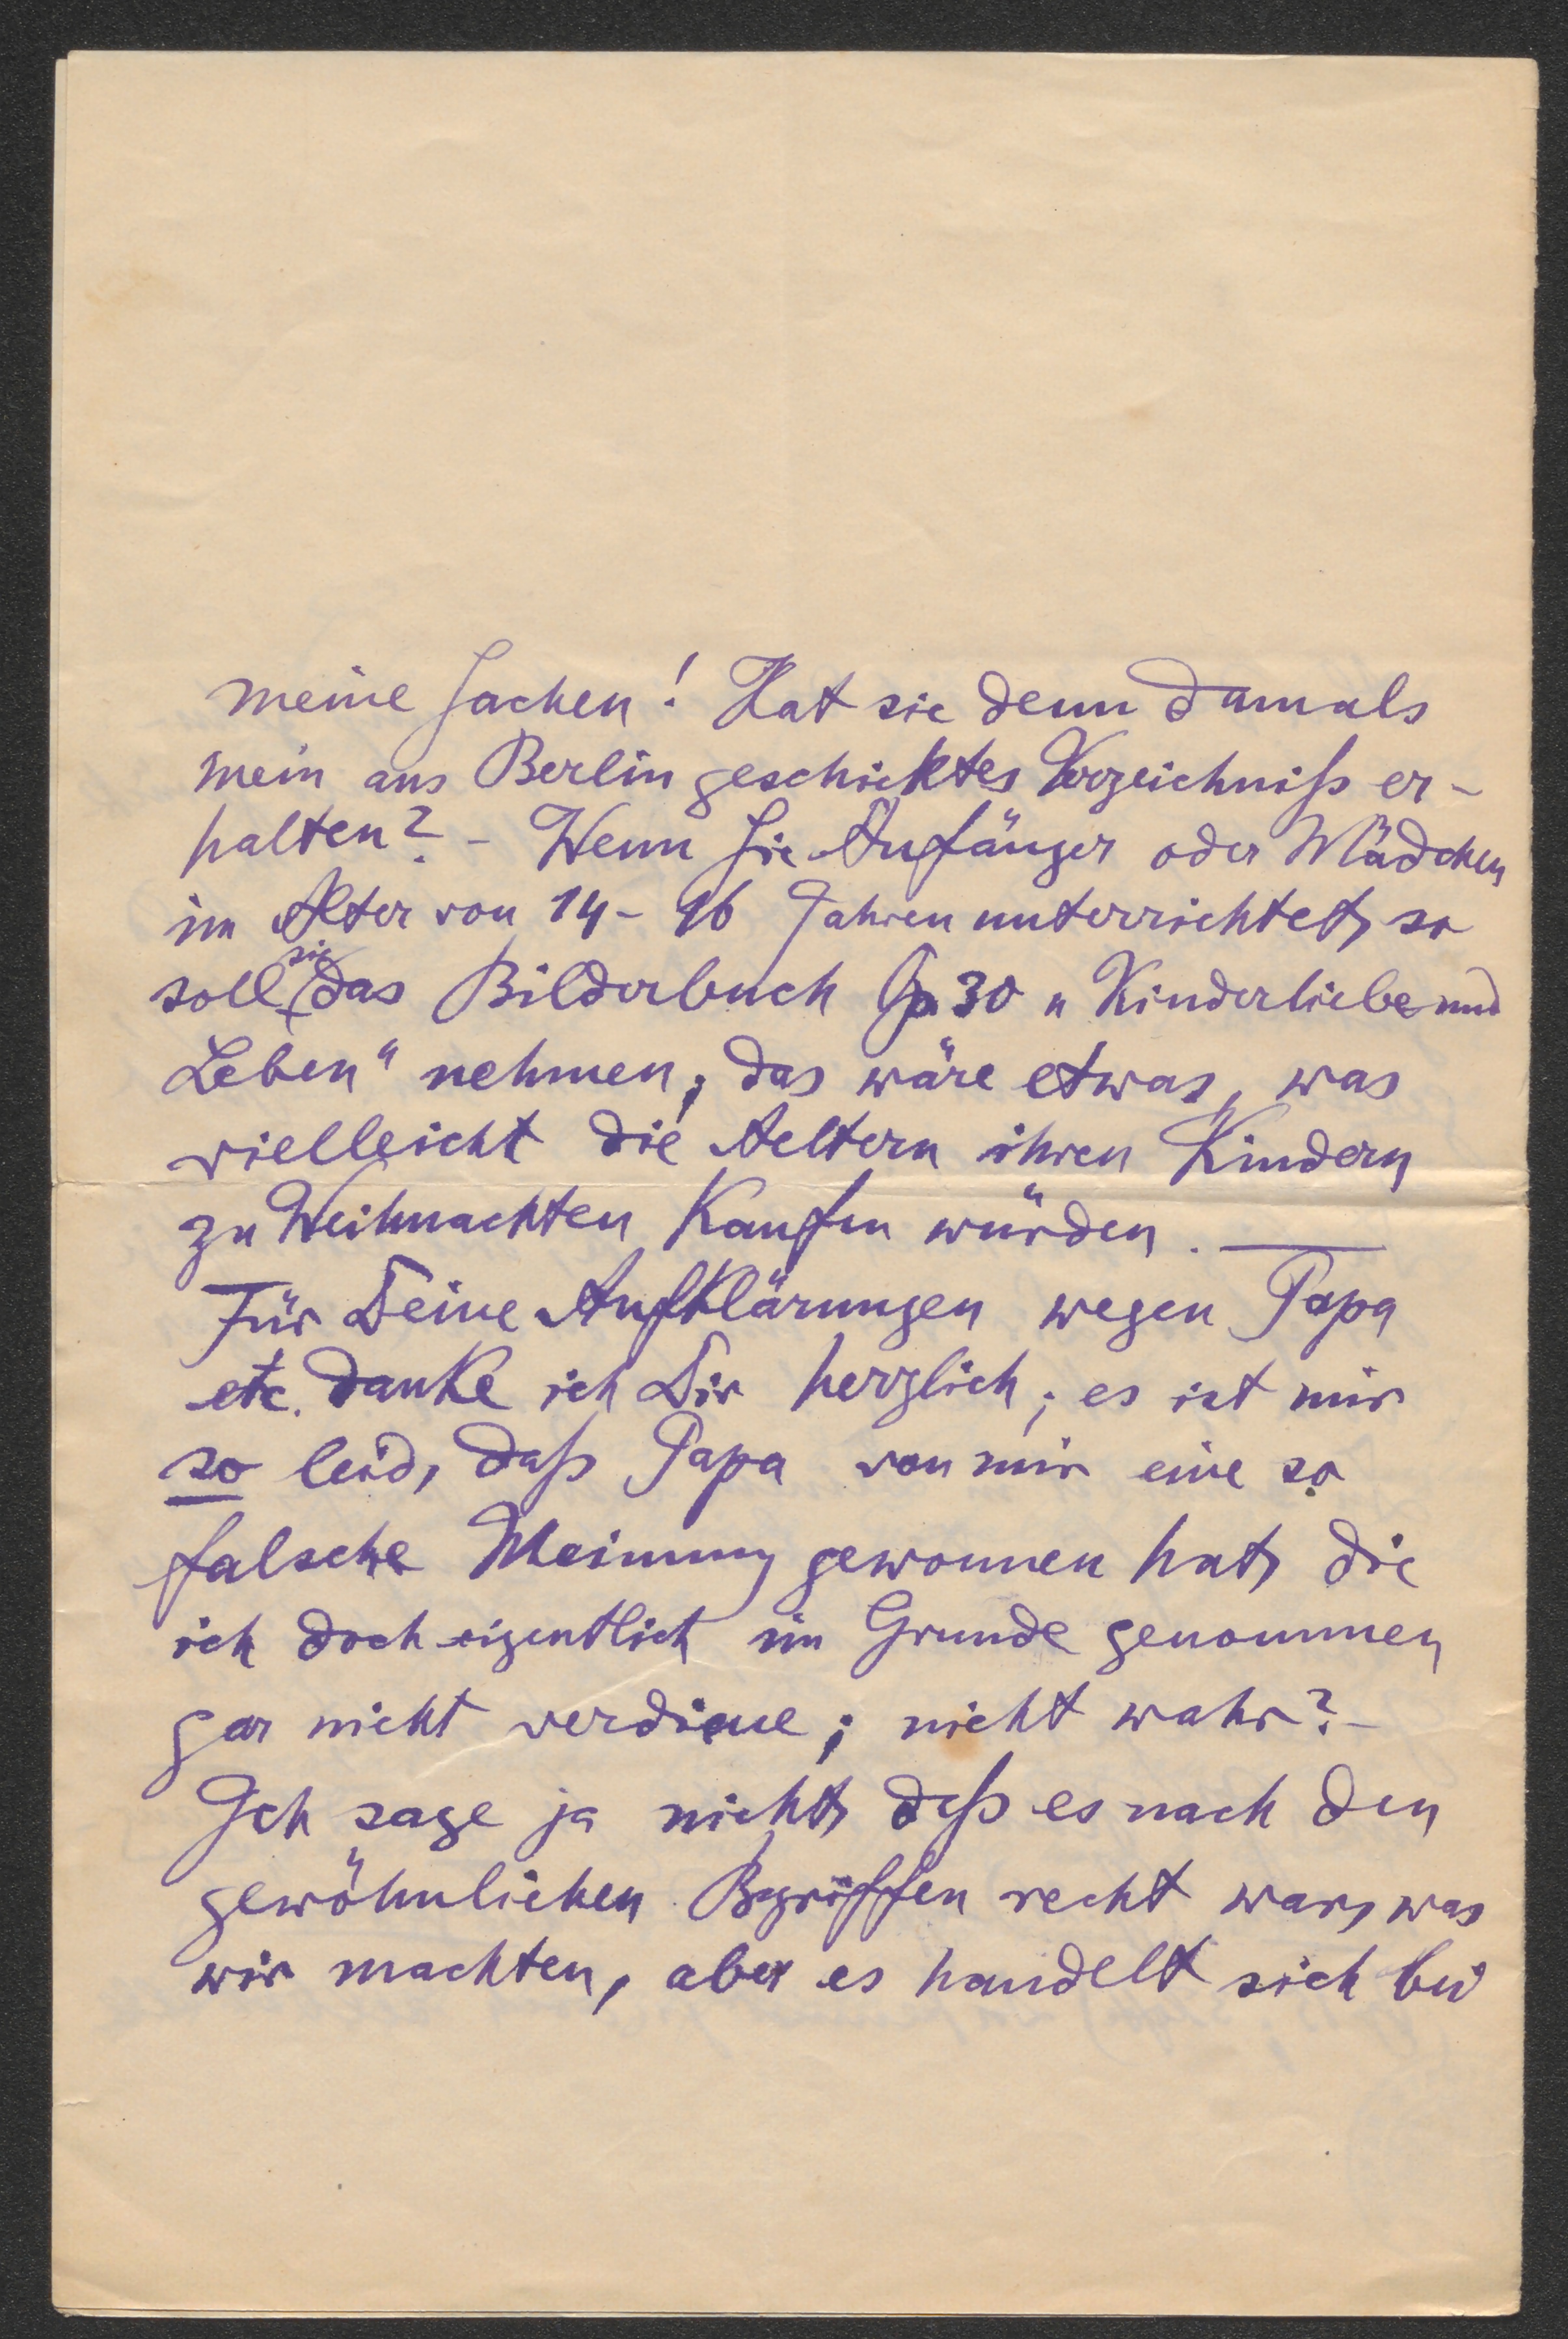 meine Sachen! Hat sie denn damals
mein aus Berlin geschicktes Verzeichniß er-
halten? - Wenn Sie Anfänger oder Mädchen
im Alter von 14-16 Jahren unterrichtet, so
soll sie das Bilderbuch Op. 30 „Kinderliebe und
Leben" nehmen; das wäre etwas, was
vielleicht die Aeltern ihren Kindern
zu Weihnachten kaufen würden. —
Für Deine Aufklärungen wegen Papa
etc. danke ich Dir herzlich; es ist mir
so leid, daß Papa von mir eine so
falsche Meinung gewonnen hat, die
ich doch eigentlich im Grunde genommen
gar nicht verdiene; nicht wahr? -
Ich sage ja nicht, daß es nach den
gewöhnlichen Begriffen recht war, was
wir machten, aber es handelt sich bei